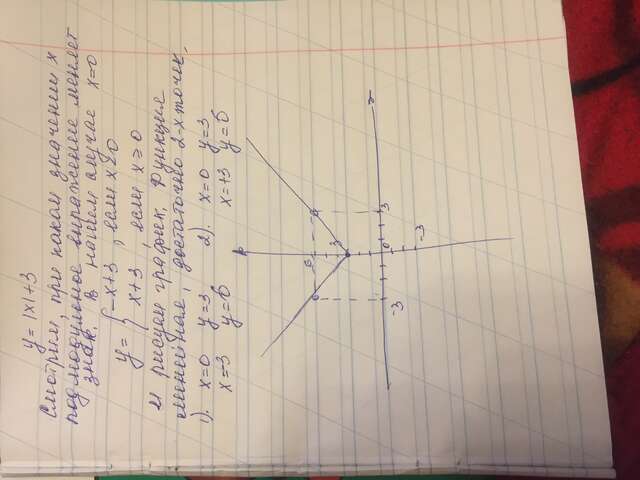 y = |x|+3
Смотрим, при каком значении x
подмодульное выражение меняет
знак. В нашем случае x=0
y = { -x+3 , если x<0
x+3 , если x ≥ 0
И рисуем график. Функция
линейная, достаточно 2-х точек.
1). x=0 y=3 2). x=0 y=3
x=-3 y=6 x=+3 y=6
6
3
-3 0 3
-3